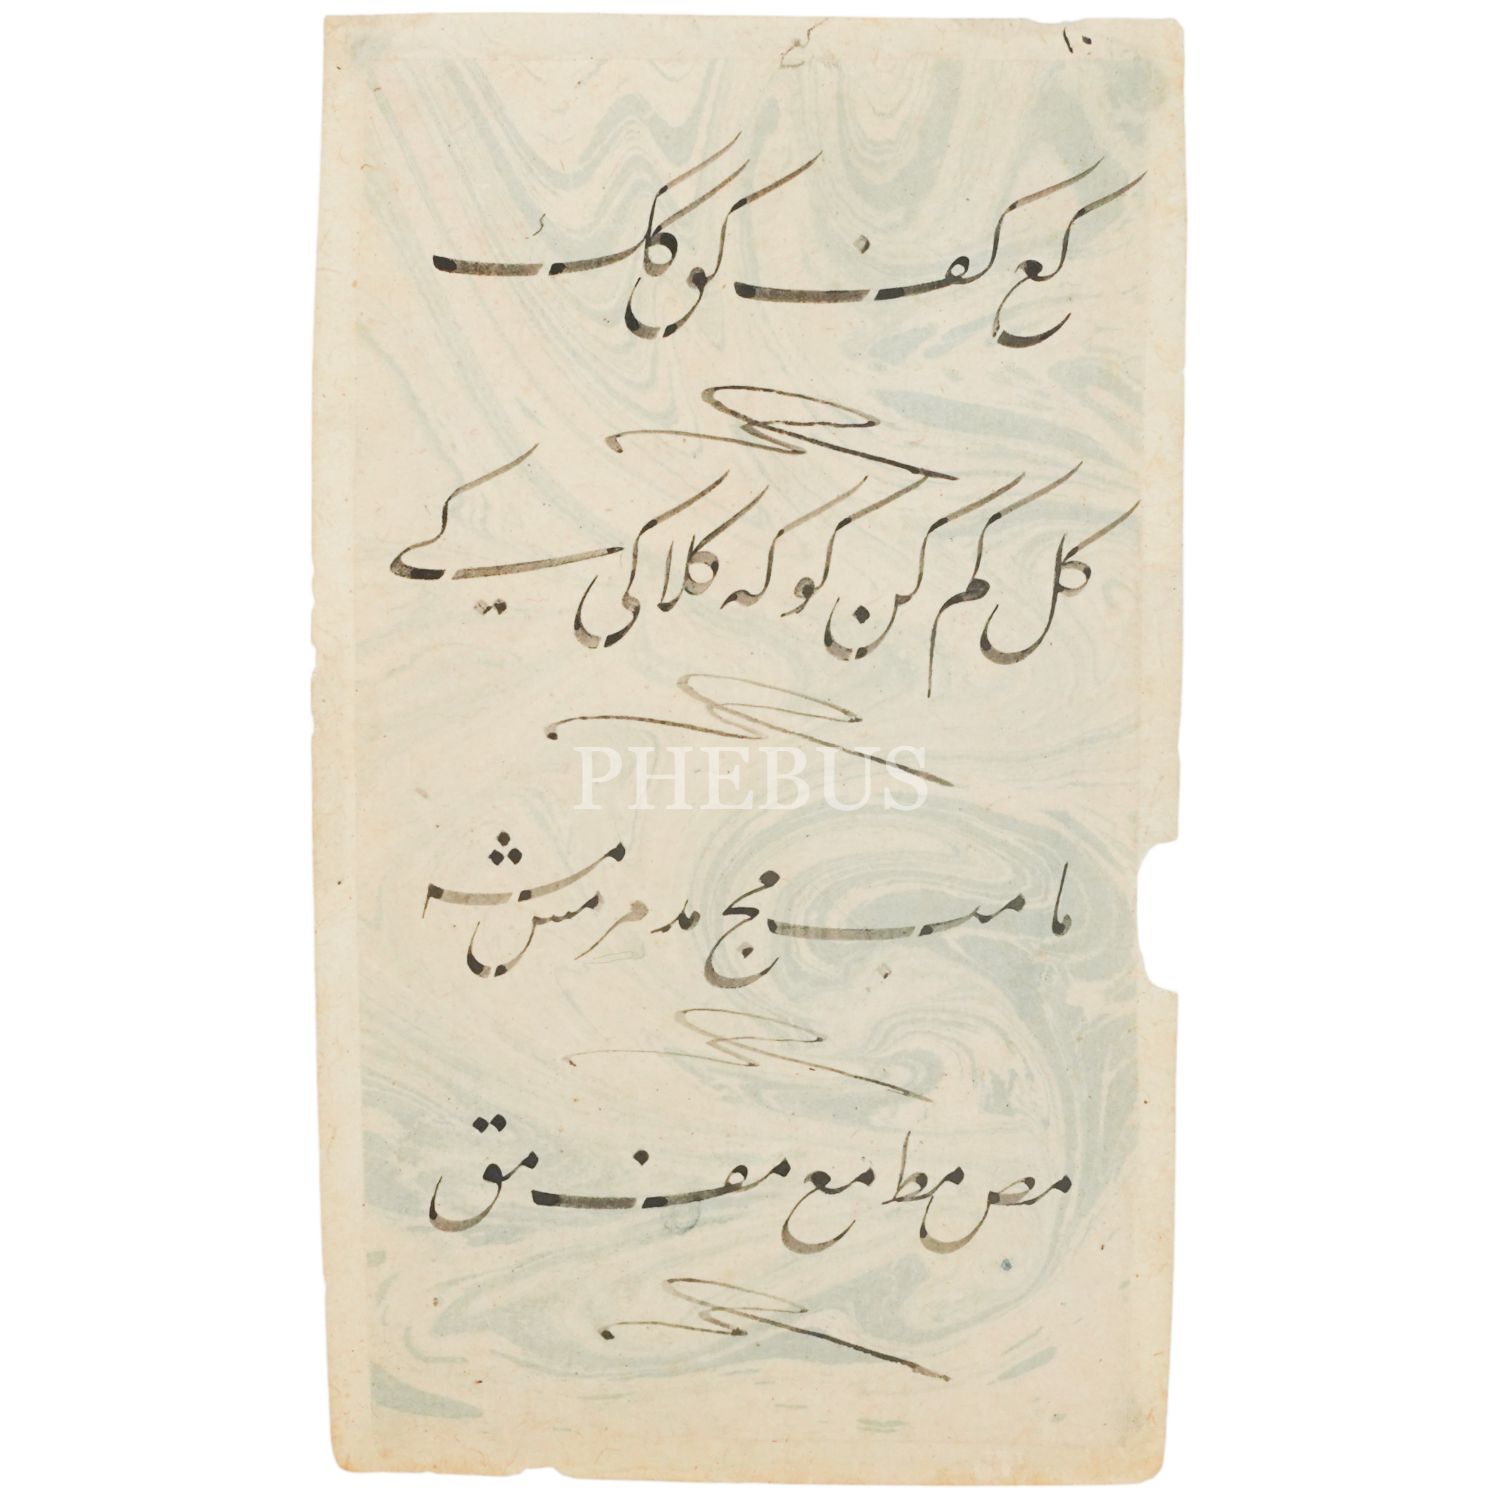 ١٠
كع
كع كف كق كك
كل كم كن كو كه كلا كى كے
PHEBUS
ما مب مج مد مر مس مسه
مص مط مع مف مق